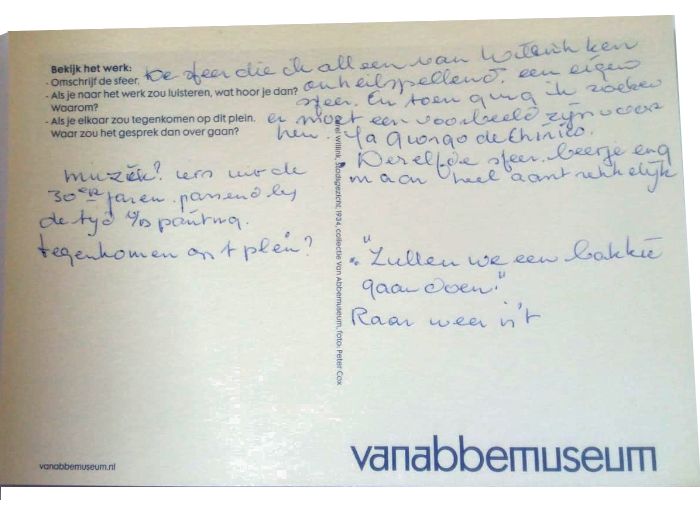 Bekijk het werk:
- Omschrijf de sfeer.
- Als je naar het werk zou luisteren, wat hoor je dan?
Waarom?
- Als je elkaar zou tegenkomen op dit plein.
Waar zou het gesprek dan over gaan?
De sfeer die ik alleen van Willink ken
onheilspellend. een eigen
sfeer. En toen ging ik zoeken
er moet een voorbeeld zijn voor
hem. Ja Giorgio de Chirico.
Dezelfde sfeer. beetje eng
maar heel aantrekkelijk
muziek? iets uit de
30er jaren. passend bij
de tijd v/d painting.
tegenkomen op 't plein?
"Zullen we een bakkie
gaan doen."
Raar weer is 't
Willink, Stadsgezicht, 1934, collectie Van Abbemuseum, foto: Peter Cox
vanabbemuseum.nl
vanabbemuseum